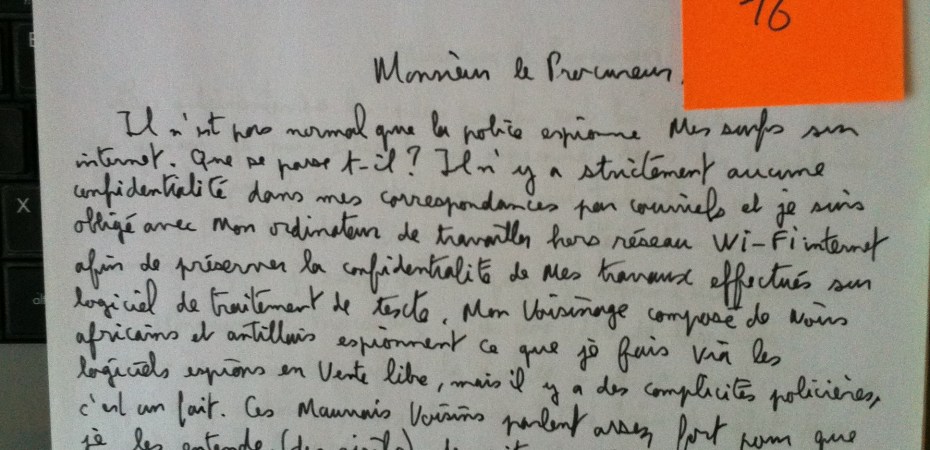 16
Monsieur le Procureur,
Il n'est pas normal que la police espionne Mes surfs sur
internet. Que se passe t-il? Il n'y a strictement aucune
confidentialité dans mes correspondances par courriels et je suis
obligé avec Mon ordinateur de travailler hors réseau Wi-Fi internet
afin de préserver la confidentialité de Mes travaux effectués sur
logiciel de traitement de texte. Mon Voisinage composé de Noirs
africains et antillais espionnent ce que je fais via les
logiciels espions en Vente libre, mais il y a des complicités policières,
c'est un fait. Ces Mauvais Voisins parlent assez fort pour que
je les entende
X